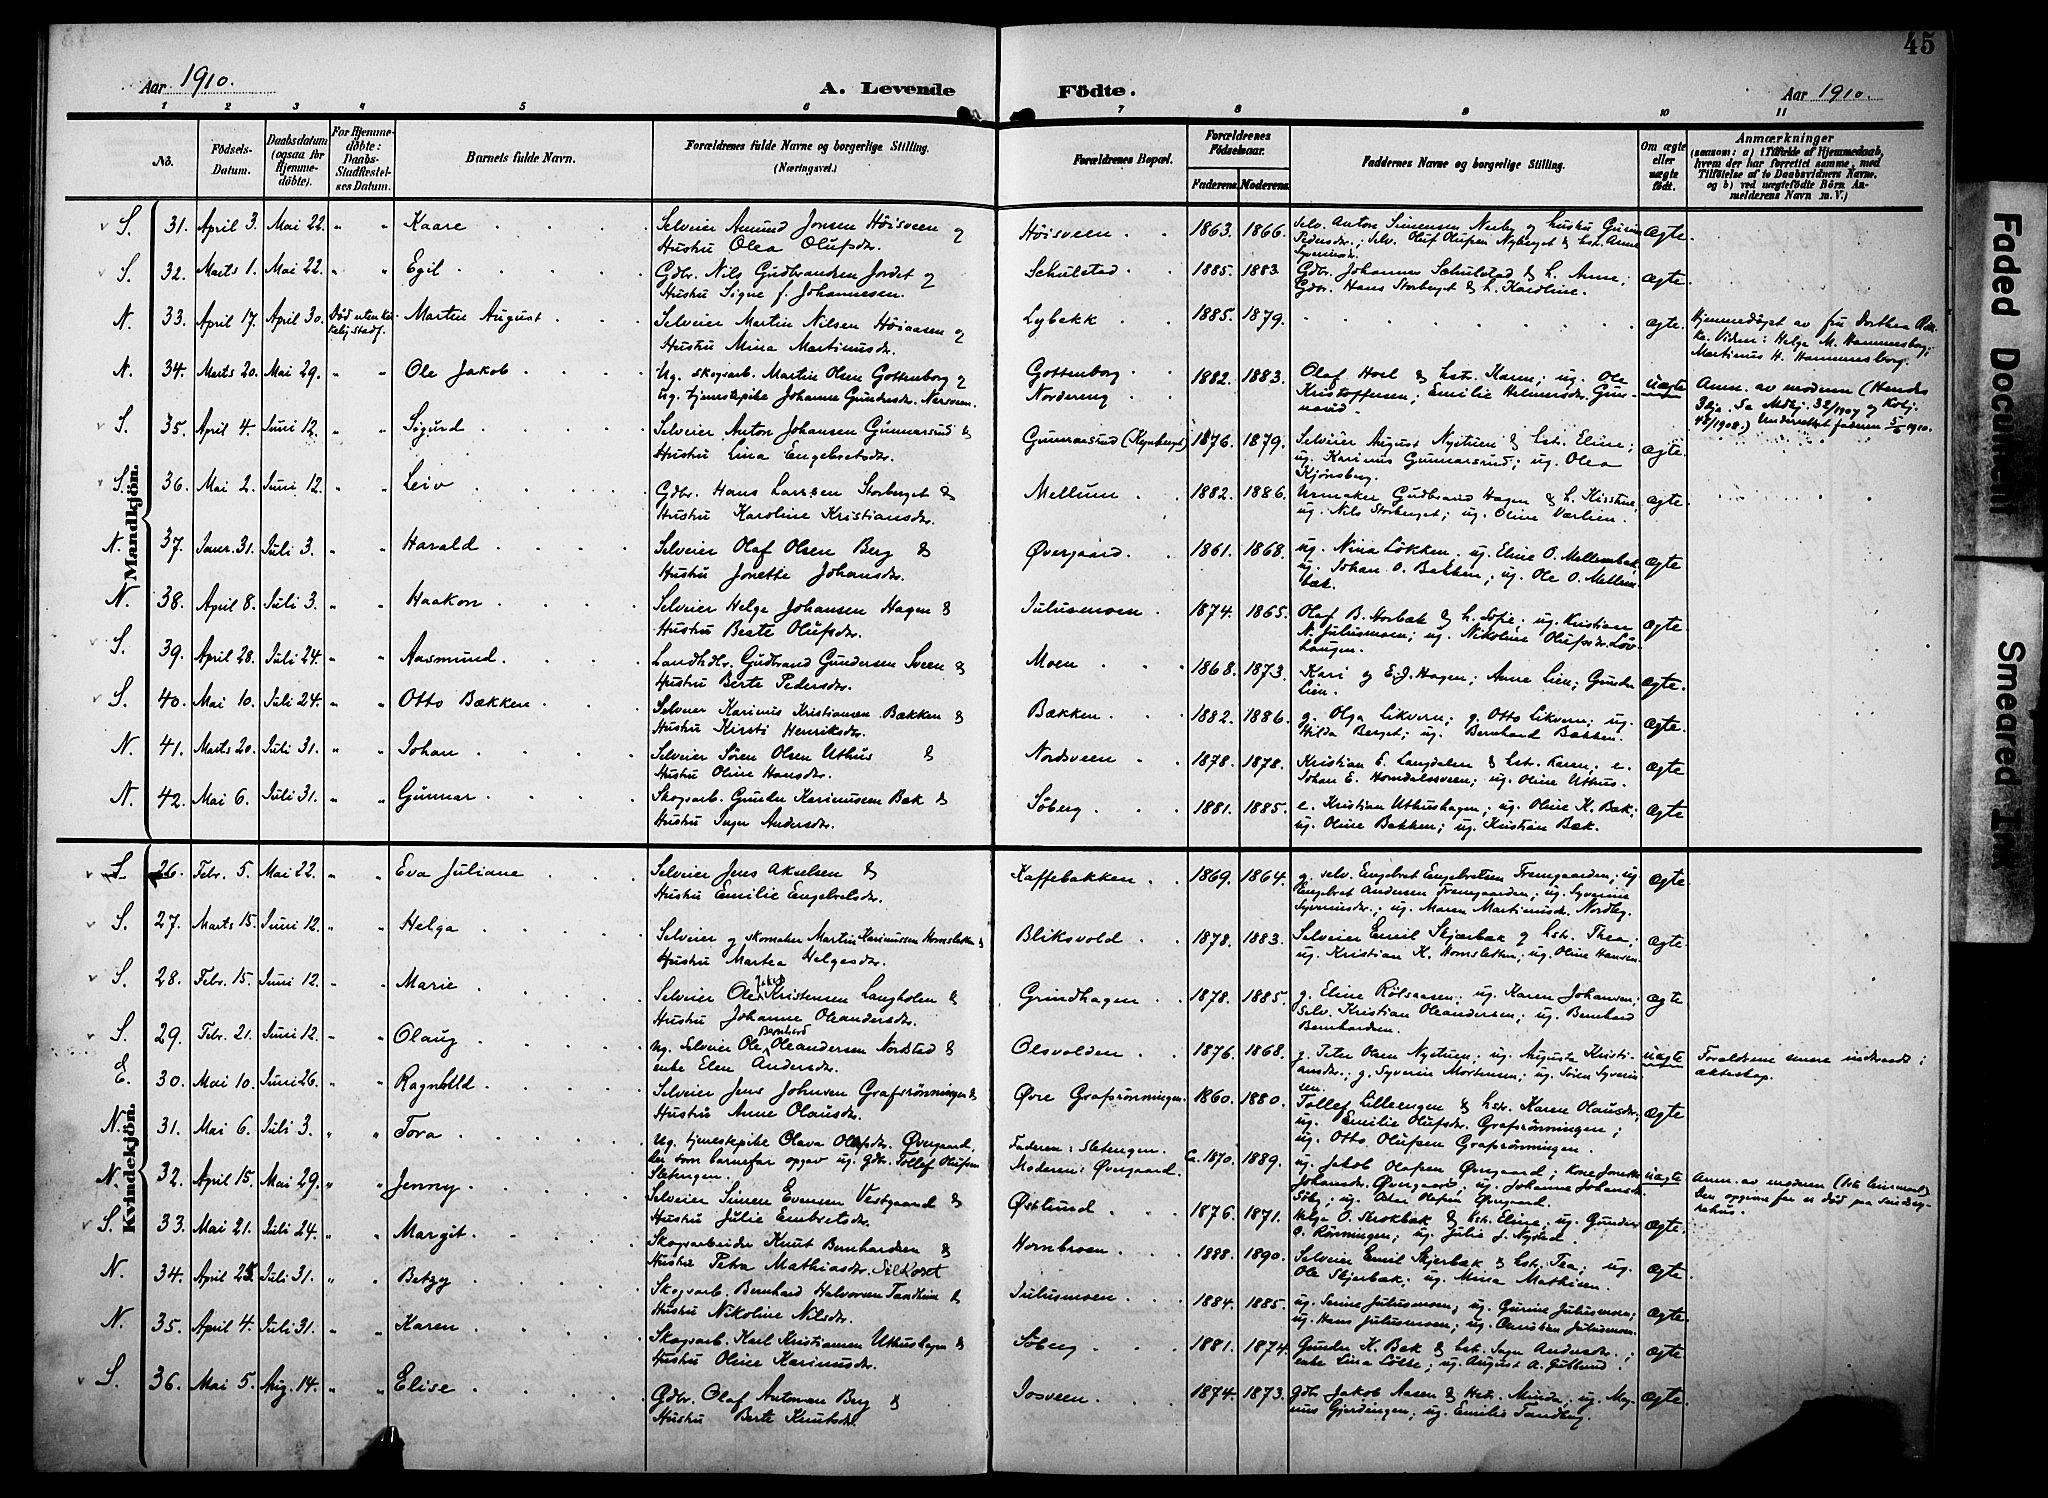 45
Aar 1910.
A. Levende Födte.
Aar 1910.
1 2 3 4 5 6 7 8 9 10 11
No.
Födsels-Datum.
Daabsdatum (ogsaa for Hjemme-döbte).
For Hjemme-döbte: Daabs-Stadfestel-ses Datum.
Barnets fulde Navn.
Forældrenes fulde Navne og borgerlige Stilling. (Næringsvei.)
Forældrenes Bopæl.
Forældrenes Födselsaar.
Faderens. Moderens.
Faddernes Navne og borgerlige Stilling.
Om ægte eller uægte födt.
Anmærkninger
(saasom: a) i Tilfælde af Hjemmedaab, hvem der har forrettet samme, med Tilföielse af to Daabsvidners Navne, og b) ved uægtefödte Börn Anmelderens Navn m. V.)
Mandkjön.
S. 31. April 3. Mai 22. " " Kaare
Selveier Amund Jonsen Höisveen og
Hustru Olea Olufsdr.
Höisveen 1863. 1866. Selv. Anton Simensen Nerby og hustru
Pedersdr.; Selv. Oluf Olufsen Nyberget & hst. Anne
ægte.
S. 32. Marts 1. Mai 22. " " Egil
Gdbr. Nils Gudbrandsen Jordet og
Hustru Signe f. Johannesen.
Schulstad 1885. 1883. Gdbr. Johannes Schulstad & h. Anne;
Gdbr. Hans Storberget & h. Karoline. ægte.
N. 33. April 17. April 30. Martin August
Selveier Martin Nilsen Höiaasen og
Hustru Mina Martinusdr.
Lybekk 1885. 1879. ægte.
Hjemmedöpt av fru Dorthea
Vidner: Helge M. Hammersborg;
Martinus H. Hammersborg.
N. 34. Marts 20. Mai 29. " " Ole Jakob
Ug. skogsarb. Martin Olsen Gottenborg og
Ug. tjenestepike Johanne Gundersdr. Nersveen.
Gottenborg
Nordereng
1882. 1883. Olaf Hoel & hst. Karen; ug. Ole
Kristoffersen; Emilie Helmersdr.
uægte
Anm. av moderen
48/1908.) Underrettet faderen 5/6 1910.
S. 35. April 4. Juni 12. " " Sigurd
Selveier Anton Johansen Gunnarsrud &
Hustru Lina Engebretsdr.
Gunnarsrud (Kynberget) 1876. 1879. Selveier August Nytuen & hst. Eline;
ug. Karinus Gunnarsrud; ug. Olea
Kjönsberg.
ægte.
S. 36. Mai 2. Juni 12. " " Leiv
Gdbr. Hans Larssen Storberget &
Hustru Karoline Kristiansdr.
Mellum 1882. 1886. Urmaker Gudbrand Hagen & h.
ug. Nils Storberget; ug. Oline Værlien.
ægte.
N. 37. Janr. 31. Juli 3. " " Harald
Selveier Olaf Olsen Berg &
Hustru Jonette Johansdr.
Øvergaard. 1861. 1868. ug. Nina Løkken. ug. Eline O. Mellembæk,
ug. Johan O. Bakken; ug. Ole O. Mellem
bæk.
ægte
N. 38. April 8. Juli 3. " " Haakon
Selveier Helge Johansen Hagen &
Hustru Berte Olufsdr.
Julusmoen 1874. 1865. Olaf B. Horbæk & h. Sofie. ug. Kristian
N. Julusmoen; ug. Nikoline Olufsdr.
haugen.
ægte.
S. 39. April 28. Juli 24. " " Aasmund
Landhdlr. Gudbrand Gundersen Sveen &
Hustru Berte Pedersdr.
Moen 1868. 1873. Kari og E.J. Hagen; Anne Lien; Gunder
Lien.
ægte.
S. 40. Mai 10. Juli 24. " " Otto Bækken
Selveier Karinus Kristiansen Bækken &
Hustru Kirsti Henriksdr.
Bækken 1882. 1886. g. Olga Likvern; g. Otto Likvern; ug.
Hilda Berget; ug. Bernhard Bækken.
ægte.
N. 41. Marts 20. Juli 31. " " Johan
Selveier Sören Olsen Uthus &
Hustru Oline Hansdr.
Nordsveen 1878. 1878. Kristian E. Langdalen & hst. Karen. e.
Johan E. Homdalssveen; ug. Oline Uthus.
ægte
N. 42. Mai 6. Juli 31. " " Gunnar
Skogsarb. Gunder Karinusen Bæk &
Hustru Inger Andersdr.
Söberg 1881. 1885. e. Kristian Uthushagen; ug. Oline K. Bæk;
ug. Oline Bakken; ug. Kristian Bæk.
ægte
Kvindekjön.
S. 26. Febr. 5. Mai 22. " " Eva Juliane
Selveier Jens Akselsen &
Hustru Emilie Engebretsdr.
Kaffebakken 1869. 1864. g. selv. Engebret Engebretsen Fremgaarden; ug
Engebret Andersen Fremgaarden; ug. Syverine
Syverinsdr.; ug. Maren Martinusdr. Nordby.
ægte.
S. 27. Marts 15. Juni 12. " " Helga
Selveier og skomaker Martin Karinussen Homsletten &
Hustru Martea Helgesdr.
Bliksvold 1878. 1883. Selveier Emil Skjærbæk og hst. Thea;
ug. Kristian K. Homsletten; ug. Oline Hansen.
ægte.
S. 28. Febr. 15. Juni 12. " " Marie
Selveier Ole Jakob Kristensen Langholen &
Hustru Johanne Oleandersdr.
Grindhagen 1878. 1885. g. Eline Rölsaasen; ug. Karen Johansen;
Selv. Kristian Oleandersen; ug. Bernhard
Bernhardsen.
ægte
S. 29. Febr. 21. Juni 12. " " Olaug
Ug. Selveier Ole Bernhard Oleandersen Nordstad &
enke Elen Andersdr.
Olsvolden 1876. 1868. g. Peter Olsen Nytuen; ug. Augusta Kristi-
ansdr. g. Syverin Mortensen; ug. Sören Syverin
sen.
uægte
Forældrene senere indtraadt i
ækteskap.
E. 30. Mai 10. Juni 26. " " Ragnhild
Selveier Jens Johnsen Grafsrönningen &
Hustru Anne Olausdr.
Øvre Grafsrönningen. 1860. 1880. Tollef Lilleengen & hst. Karen Olausdr.
ug. Emilie Olufsdr. Grafsrönningen;
ug. Otto Olufsen Grafsrönningen.
ægte.
N. 31. Mai 6. Juli 3. " " Tora
Ug. tjenestepike Olava Olafsdr. Øvergaard,
der som barnefar opgav ug. gdbr. Tollef Olufsen
Sletengen.
Faderen: Sletengen.
Moderen: Øvergaard.
Ca. 1870. 1889. ug. Jakob Olafsen Øvergaard; Kone Jonette
Johansdr. Øvergaard; ug. Johanne Johansdr.
Söby; ug. Olafsen Øvergaard.
uægte
Anm. av moderen
Den opgivne far er död paa sindssy-
kehus.
N. 32. April 15. Mai 29. " " Jenny
Selveier Simen Evensen Vestgaard &
Hustru Julie Embretsdr.
Østlund 1876. 1871. Helge O. Skrokbæk & hst. Eline; ug. Gunder
O. Rönningen; ug. Julie J. Nystad.
ægte.
S. 33. Mai 21. Juli 24. " " Margit
Skogsarbeider Knut Bernhardsen &
Hustru Petra Mathiasdr. Silkoset
Hornbroen 1888. 1890. Selveier Emil Skjerbæk & hst. Tea; ug.
Ole Skjerbæk; ug. Mina Mathisen.
ægte.
N. 34. April 25. Juli 31. " " Betzy
Skogsarb. Bernhard Halvorsen Tandheim &
Hustru Nikoline Nilsdr.
Julusmoen 1884. 1885. ug. Serine Julusmoen; ug. Gurine Julusmoen;
ug. Hans Julusmoen; ug. Christian Julusmoen.
ægte.
N. 35. April 4. Juli 31. " " Karen
Skogsarb. Karl Kristiansen Uthushagen &
Hustru Oline Karinusdr.
Söberg 1881. 1874. Gunder K. Bæk & hst. Inger Andersdr.;
enke Lina Lötte; ug. August A. Gutlund.
ægte
S. 36. Mai 5. Aug. 14. " " Elise
Gdbr. Olaf Antonsen Berg &
Hustru Berte Knutsdr.
Josveen 1874. 1873. Gdbr. Jakob Aasen & Hst. Minda; ug. Mag-
nus Gjerdingen; ug. Emilie Tandberg.
ægte.
Faded Document
Smeared Ink